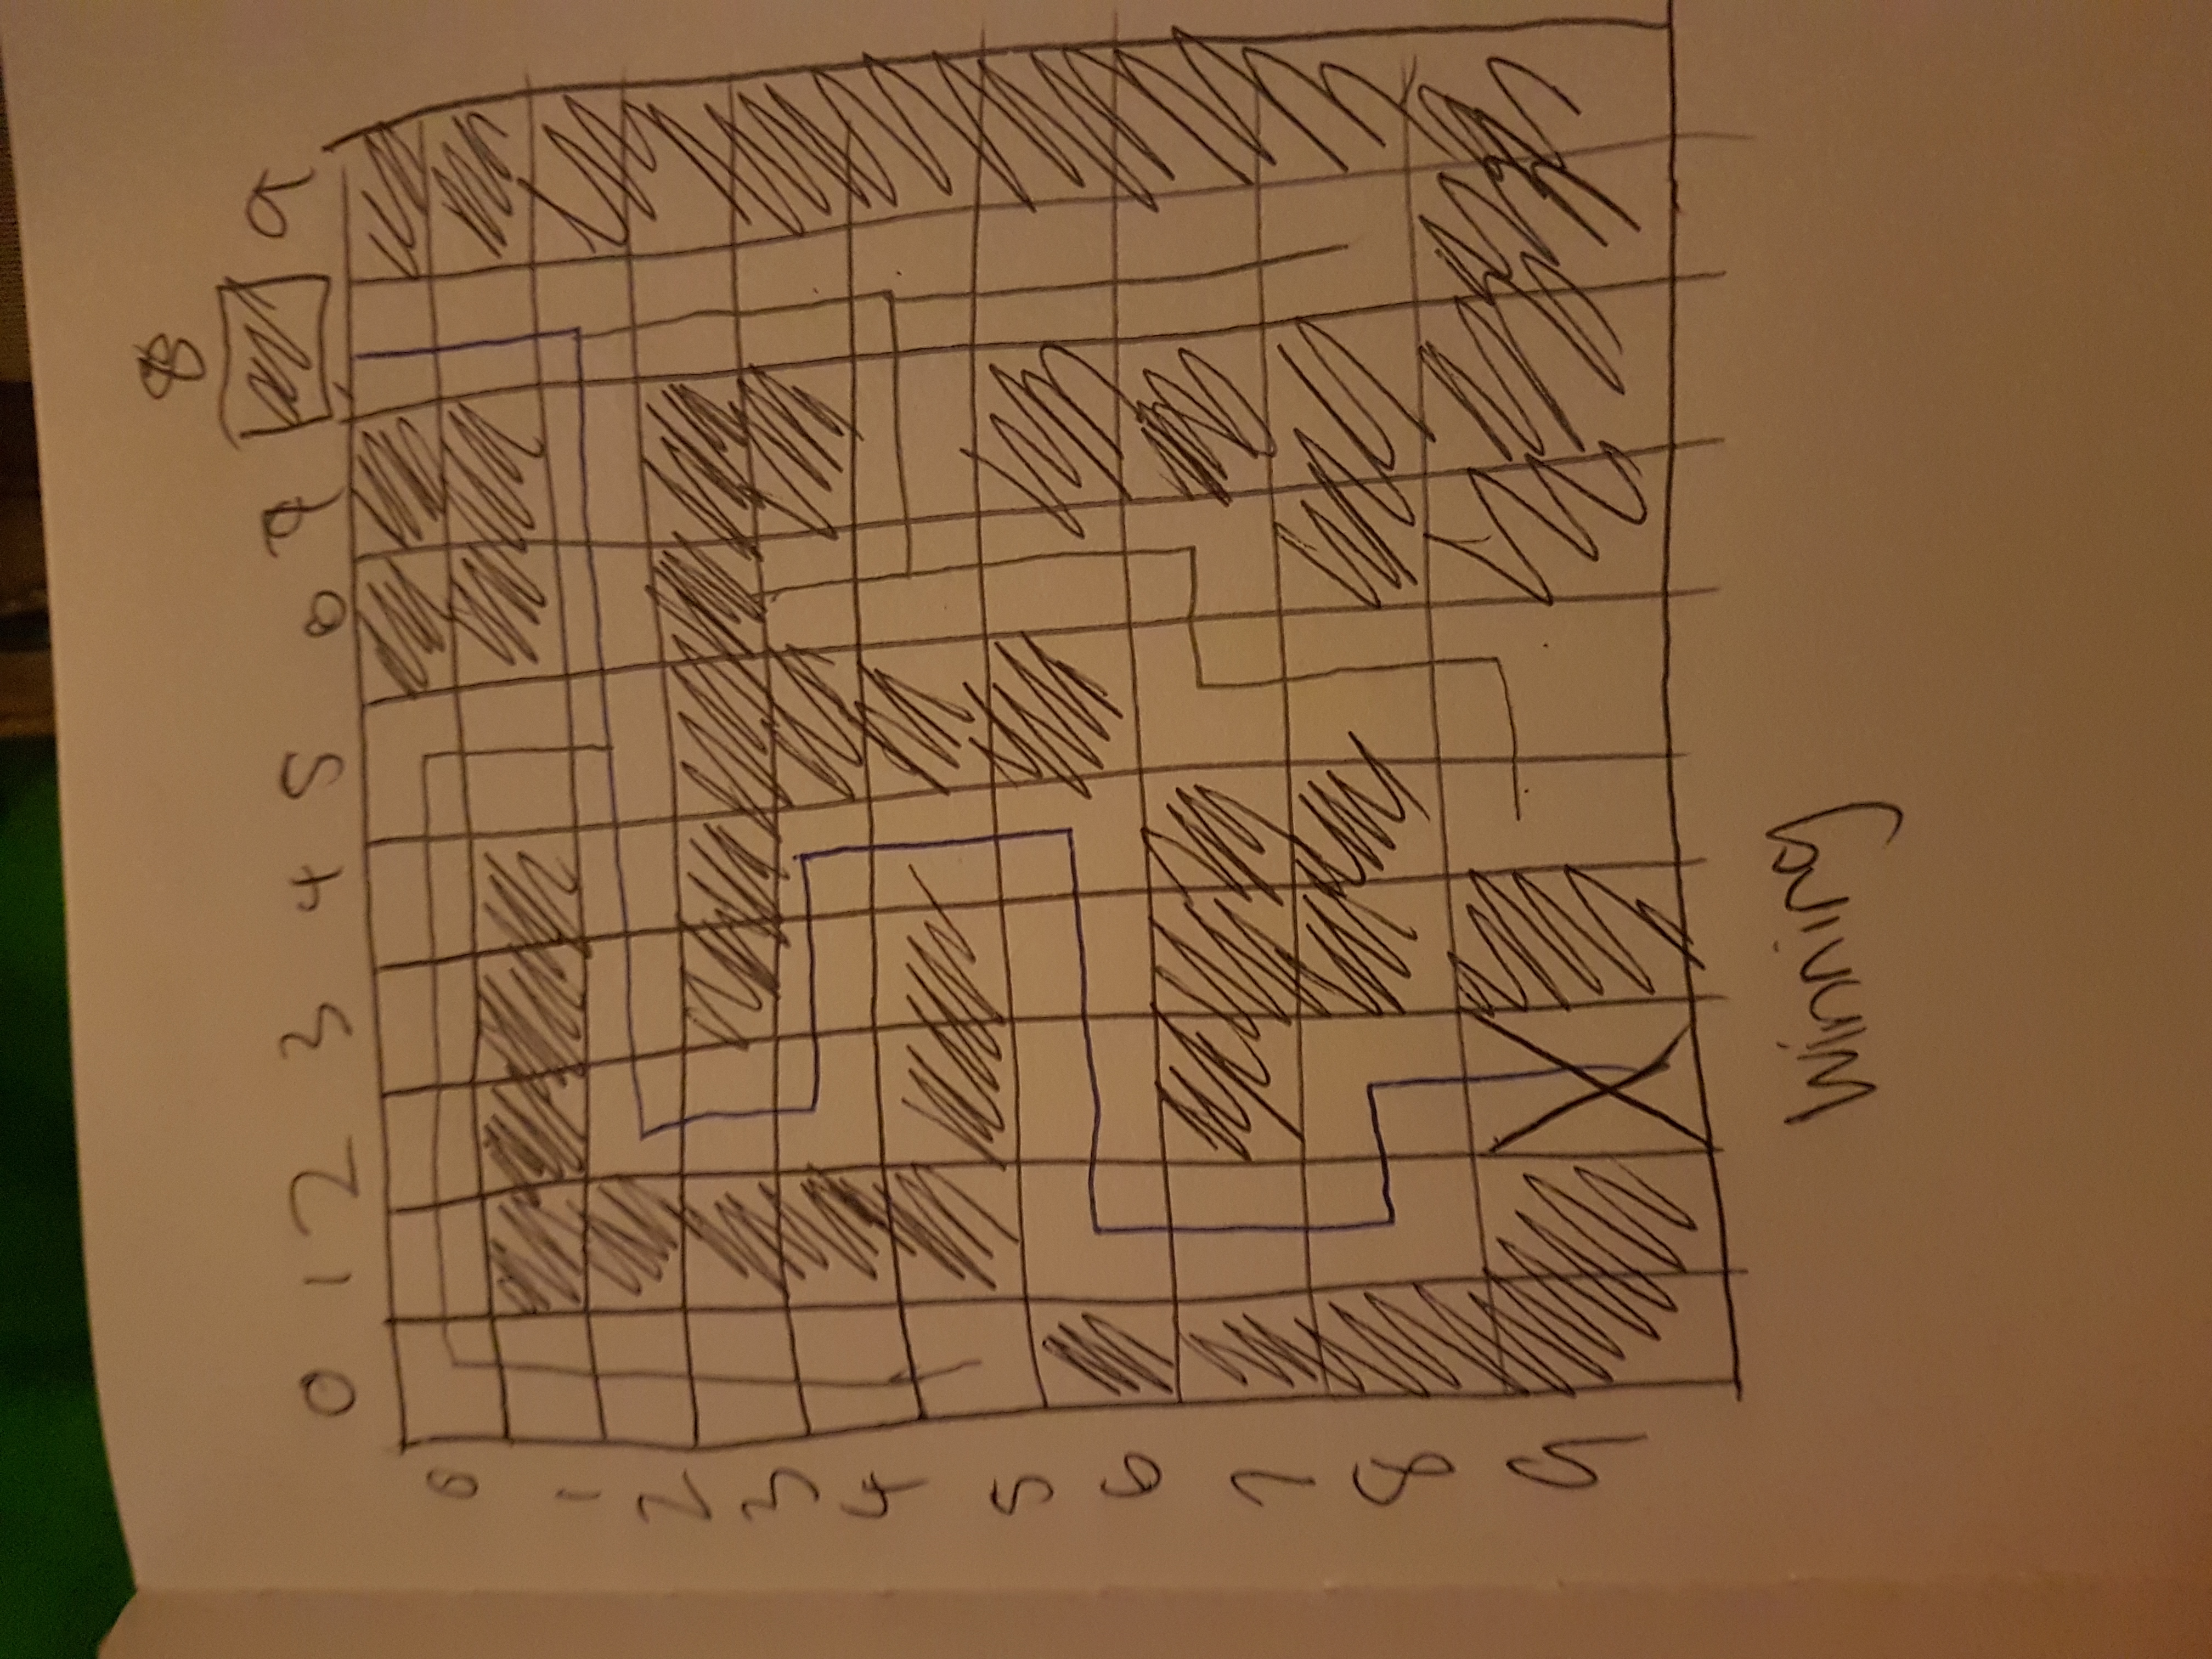 8
0 1 2 3 4 5 6 7 9
0
1
2
3
4
5
6
7
8
9
X
Winning